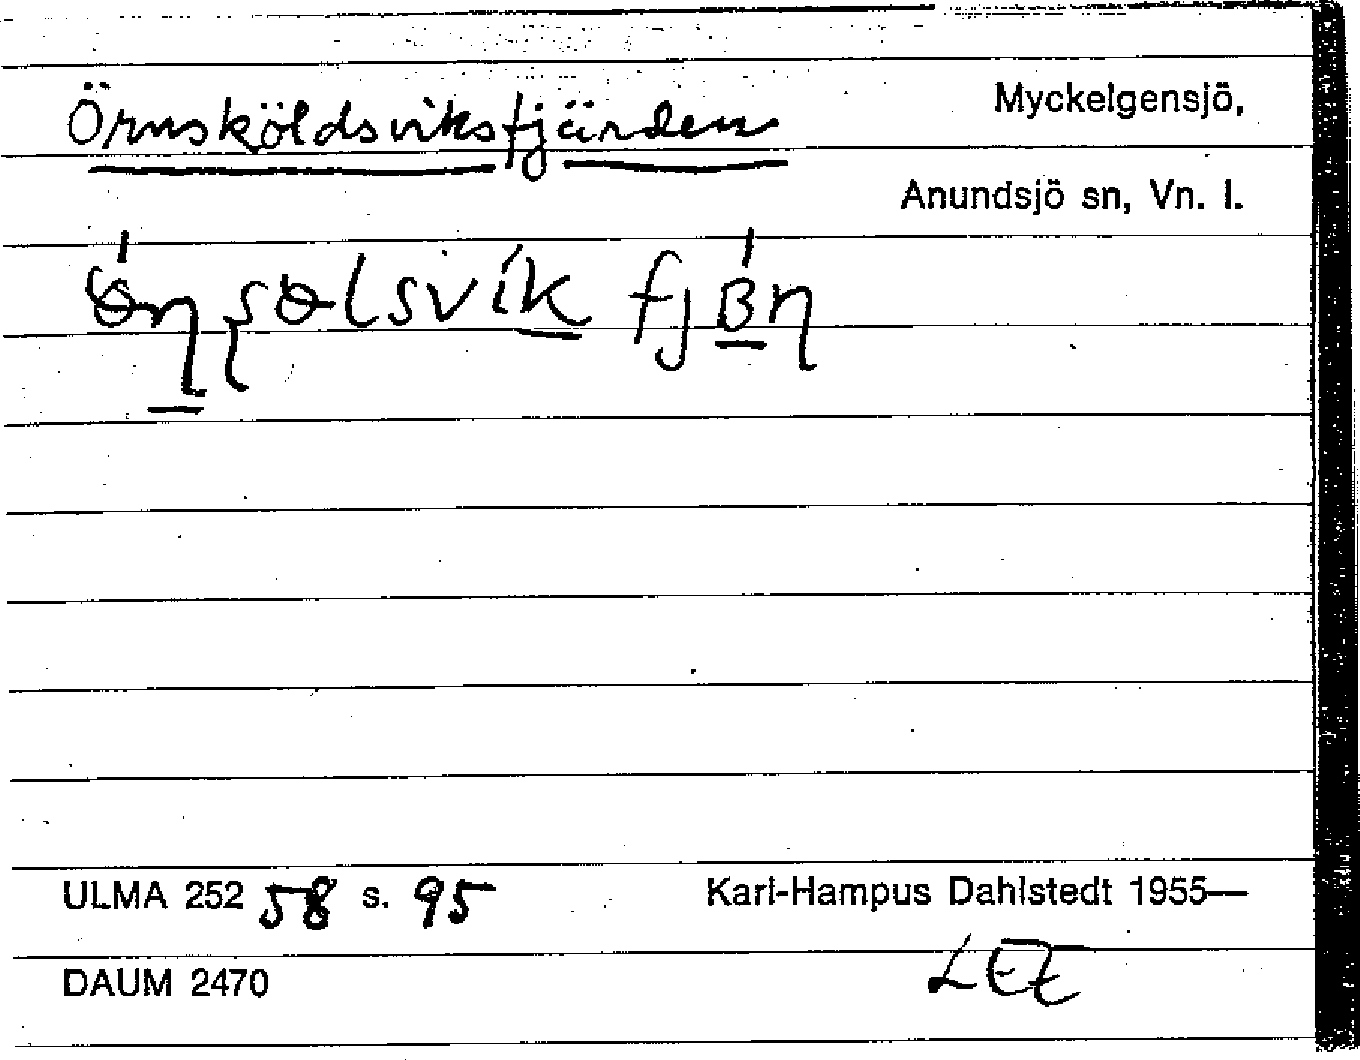 Örnsköldsviksfjärden
Myckelgensjö,
Anundsjö sn, Vn. l.
ULMA 252 58 s. 95
Karl-Hampus Dahlstedt 1955—
DAUM 2470
LEE